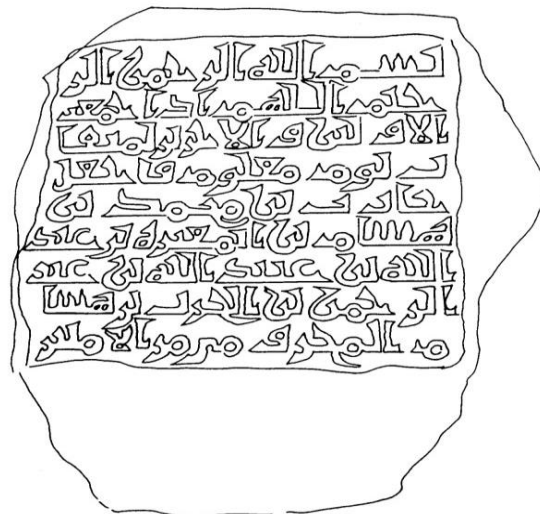 بسم الله الرحمن الر
حيم اللهم اذا جمعت
الاولين والاخرين لميقا
ت يوم معلوم فاجعل
بن محمد بن
هشام بن المغيرة بن عبد
الله بن عبيد الله بن عبد
الرحمن بن الحرث بن هشا
م المخزومي من الامنين